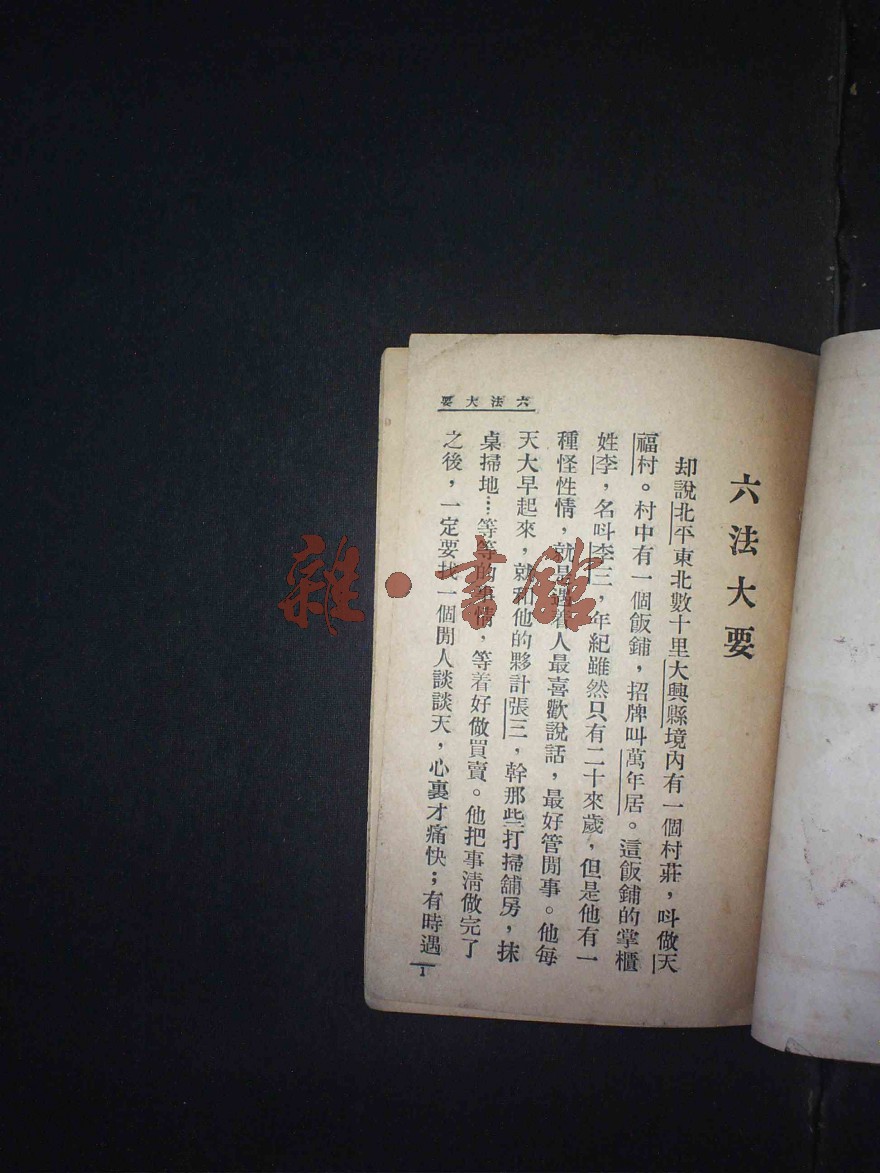 六法大要
六法大要
却說北平東北數十里大興縣境內有一個村莊，呌做天
福村。村中有一個飯鋪，招牌叫萬年居。這飯鋪的掌櫃
姓李，名呌李三，年紀雖然只有二十來歲，但是他有一
種怪性情，就是遇着人最喜歡說話，最好管閒事。他每
天大早起來，就和他的夥計張三，幹那些打掃舖房，抹
桌掃地……等等的事情，等着好做買賣。他把事淸做完了
之後，一定要找一個閒人談談天，心裏才痛快；有時遇
1
雜·書館